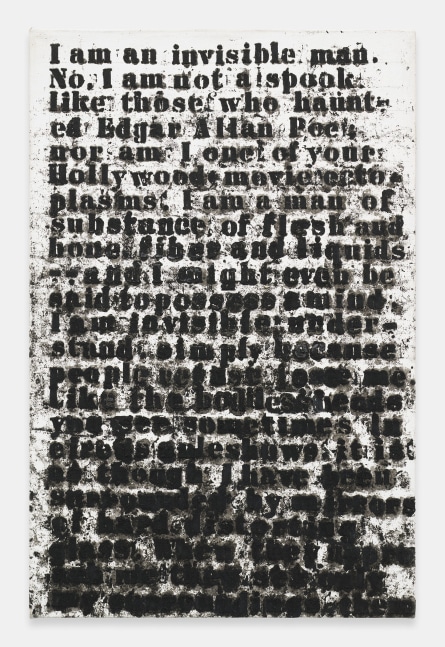 I am an invisible man.
No, I am not a spook
like those who haunt-
ed Edgar Allan Poe;
nor am I one of your
Hollywood-movie ecto-
plasms. I am a man of
substance, of flesh and
bone, fiber and liquids
--and I might even be
said to possess a mind.
I am invisible, under-
stand, simply because
people refuse to see me.
Like the bodiless heads
you see sometimes in
circus sideshows, it is
as though I have been
by mirrors
of hard, distorting
When